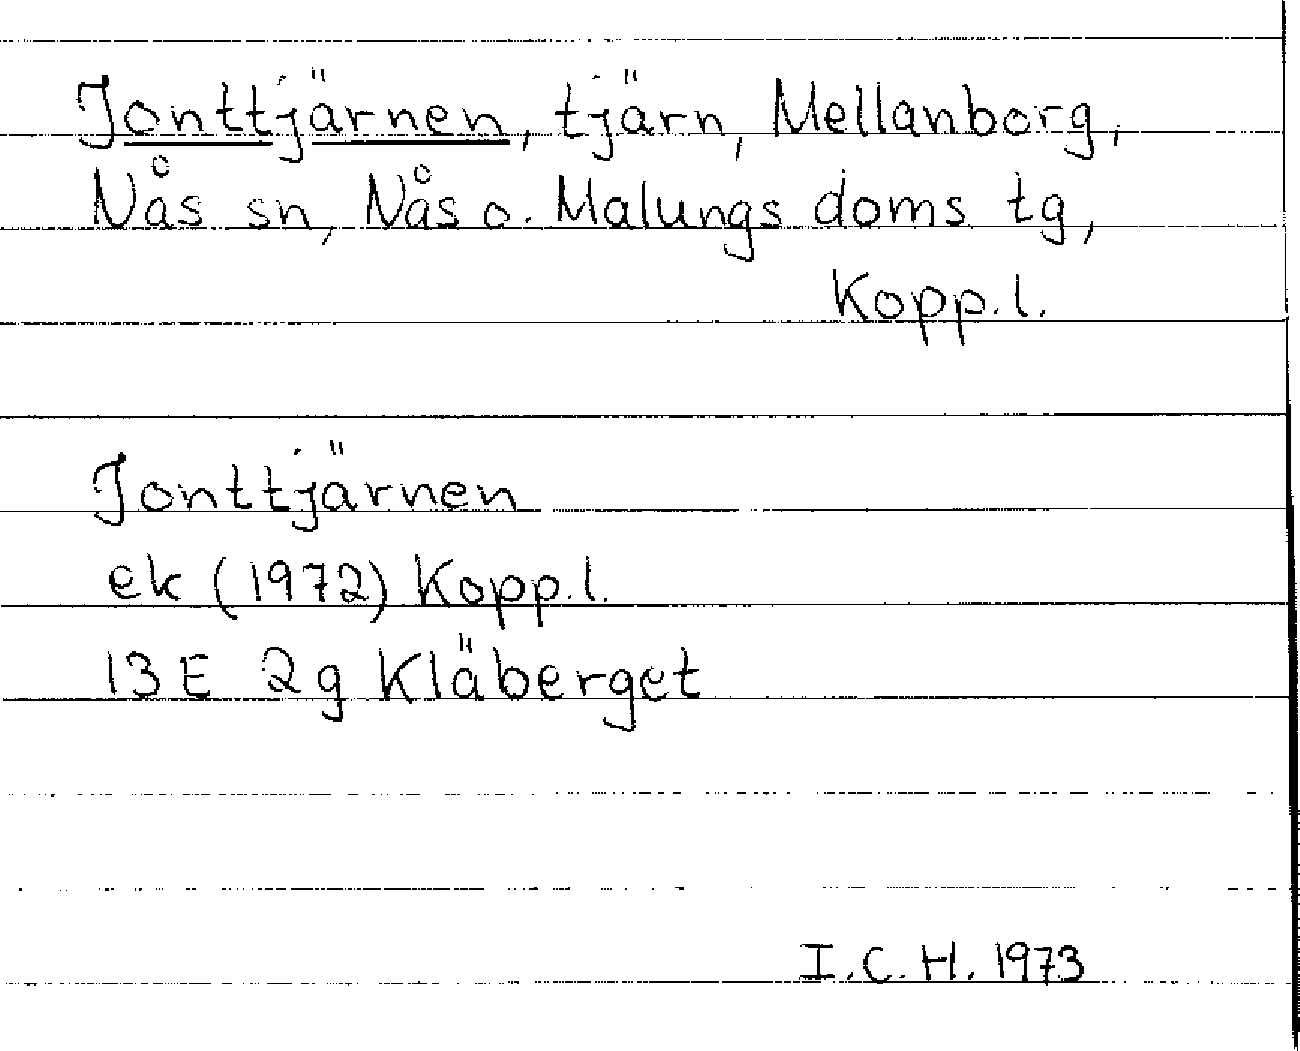 Jonttjärnen, tjärn, Mellanborg,
Nås sn, Nås o. Malungs doms tg,
Kopp. l.
Jonttjärnen
ek (1972) Kopp. l.
13 E 2g Kläberget
I. C. H. 1973